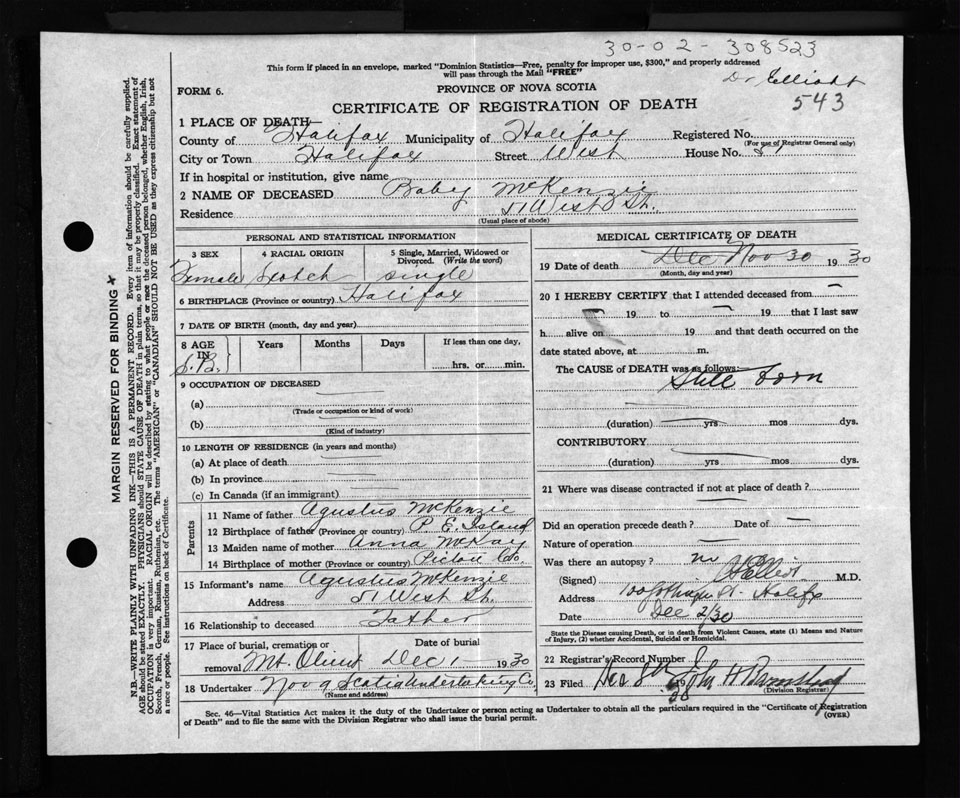 30-02-308523
This form if placed in an envelope, marked "Dominion Statistics—Free, penalty for improper use, $300," and properly addressed
will pass through the Mail "FREE"
Dr Elliott
FORM 6.
PROVINCE OF NOVA SCOTIA
543
CERTIFICATE OF REGISTRATION OF DEATH
1 PLACE OF DEATH
County of Halifax Municipality of Halifax Registered No.
(For use of Registrar General only)
City or Town Halifax Street West House No. 51
If in hospital or institution, give name
2 NAME OF DECEASED Baby McKenzie
Residence 51 West St.
(Usual place of abode)
PERSONAL AND STATISTICAL INFORMATION
3 SEX 4 RACIAL ORIGIN 5 Single, Married, Widowed or Divorced. (Write the word)
Female Scotch single
6 BIRTHPLACE (Province or country) Halifax
7 DATE OF BIRTH (month, day and year)
8 AGE IN Years Months Days If less than one day,
S.B. hrs. or min.
9 OCCUPATION OF DECEASED
(a)
(Trade or occupation or kind of work)
(b)
(Kind of industry)
10 LENGTH OF RESIDENCE (in years and months)
(a) At place of death
(b) In province
(c) In Canada (if an immigrant)
Parents
11 Name of father Agustus McKenzie
12 Birthplace of father (Province or country) P. E. Island
13 Maiden name of mother Anna McKay
14 Birthplace of mother (Province or country) Pictou Co.
15 Informant's name Agustus McKenzie
Address 51 West St.
16 Relationship to deceased Father
17 Place of burial, cremation or removal Date of burial
Mt. Olivet Dec 1 1930
18 Undertaker Nova Scotia Undertaking Co.
(Name and address)
MEDICAL CERTIFICATE OF DEATH
19 Date of death Dec Nov 30 1930
(Month, day and year)
20 I HEREBY CERTIFY that I attended deceased from
19 to 19 that I last saw
h alive on 19 and that death occurred on the
date stated above, at m.
The CAUSE OF DEATH was as follows:
Still Born
(duration) yrs mos dys.
CONTRIBUTORY
(duration) yrs mos dys.
21 Where was disease contracted if not at place of death?
Did an operation precede death? Date of
Nature of operation
Was there an autopsy? no
(Signed) Elliot M.D.
Address St. Halifx
Date Dec 2/30
State the Disease causing Death, or in death from Violent Causes, state (1) Means and Nature
of Injury, (2) whether Accidental, Suicidal or Homicidal.
22 Registrar's Record Number
23 Filed Dec 8th John H
(Division Registrar)
Sec. 46—Vital Statistics Act makes it the duty of the Undertaker or person acting as Undertaker to obtain all the particulars required in the "Certificate of Registration
of Death" and to file the same with the Division Registrar who shall issue the burial permit.
(OVER)
MARGIN RESERVED FOR BINDING
N.B.—WRITE PLAINLY WITH UNFADING INK—THIS IS A PERMANENT RECORD. Every item of information should be carefully supplied.
AGE should be stated EXACTLY. PHYSICIANS should STATE CAUSE OF DEATH in plain terms, so that it may be properly classified. Exact statement of
OCCUPATION is very important. RACIAL ORIGIN will be described by stating to what people or race the deceased person belonged, whether English, Irish,
Scotch, French, German, Russian, Ruthenian, etc. The terms "AMERICAN" or "CANADIAN" SHOULD NOT BE USED as they express citizenship but not
a race or people. See instructions on back of Certificate.